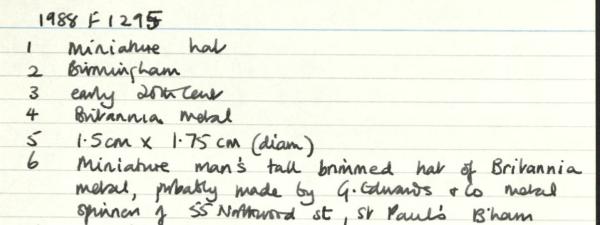 1988 F 1295
1 Miniature hat
2 Birmingham
3 early 20th Cent
4 Britannia Metal
5 1.5cm x 1.75 cm (diam)
6 Miniature man's tall brimmed hat of Britannia
metal, probably made by G. Edwards & Co metal
spinners of 55 Northwood st, St Paul's B'ham